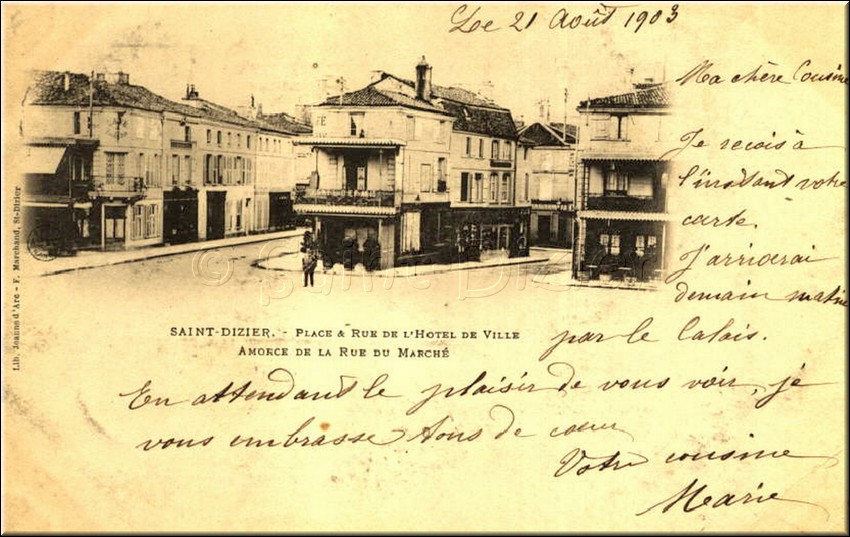 Le 21 Août 1903
Ma chère Cousine
Je reçois à
l'instant votre
carte.
J'arriverai
demain matin
par le Calais.
En attendant le plaisir de vous voir, je
vous embrasse tous de cœur
Votre cousine
Marie
SAINT-DIZIER. - PLACE & RUE DE L'HOTEL DE VILLE
AMORCE DE LA RUE DU MARCHÉ
Lib. Jeanne d'Arc - F. Marchand, St-Dizier
© Saint Dizier